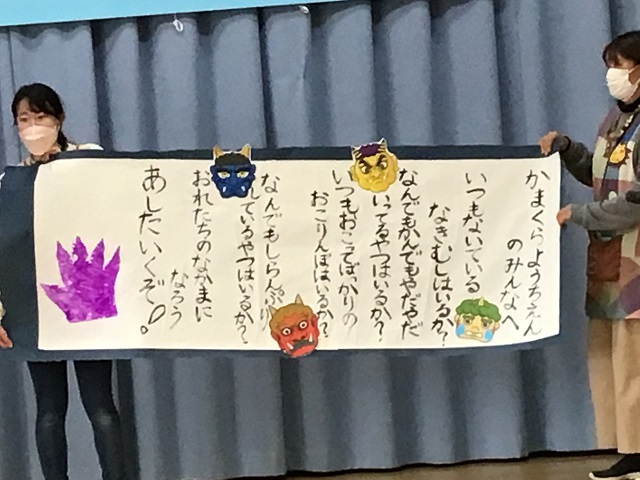 かまくらようちえん
のみんなへ
いつもないている
なきむしはいるか?
なんでもかんでもやだやだ
いってるやつはいるか?
いつもおこってばっかりの
おこりんぼはいるか?
なんでもしらんぷり
しているやつはいるか?
おれたちのなかまに
なろう
あしたいくぞ!